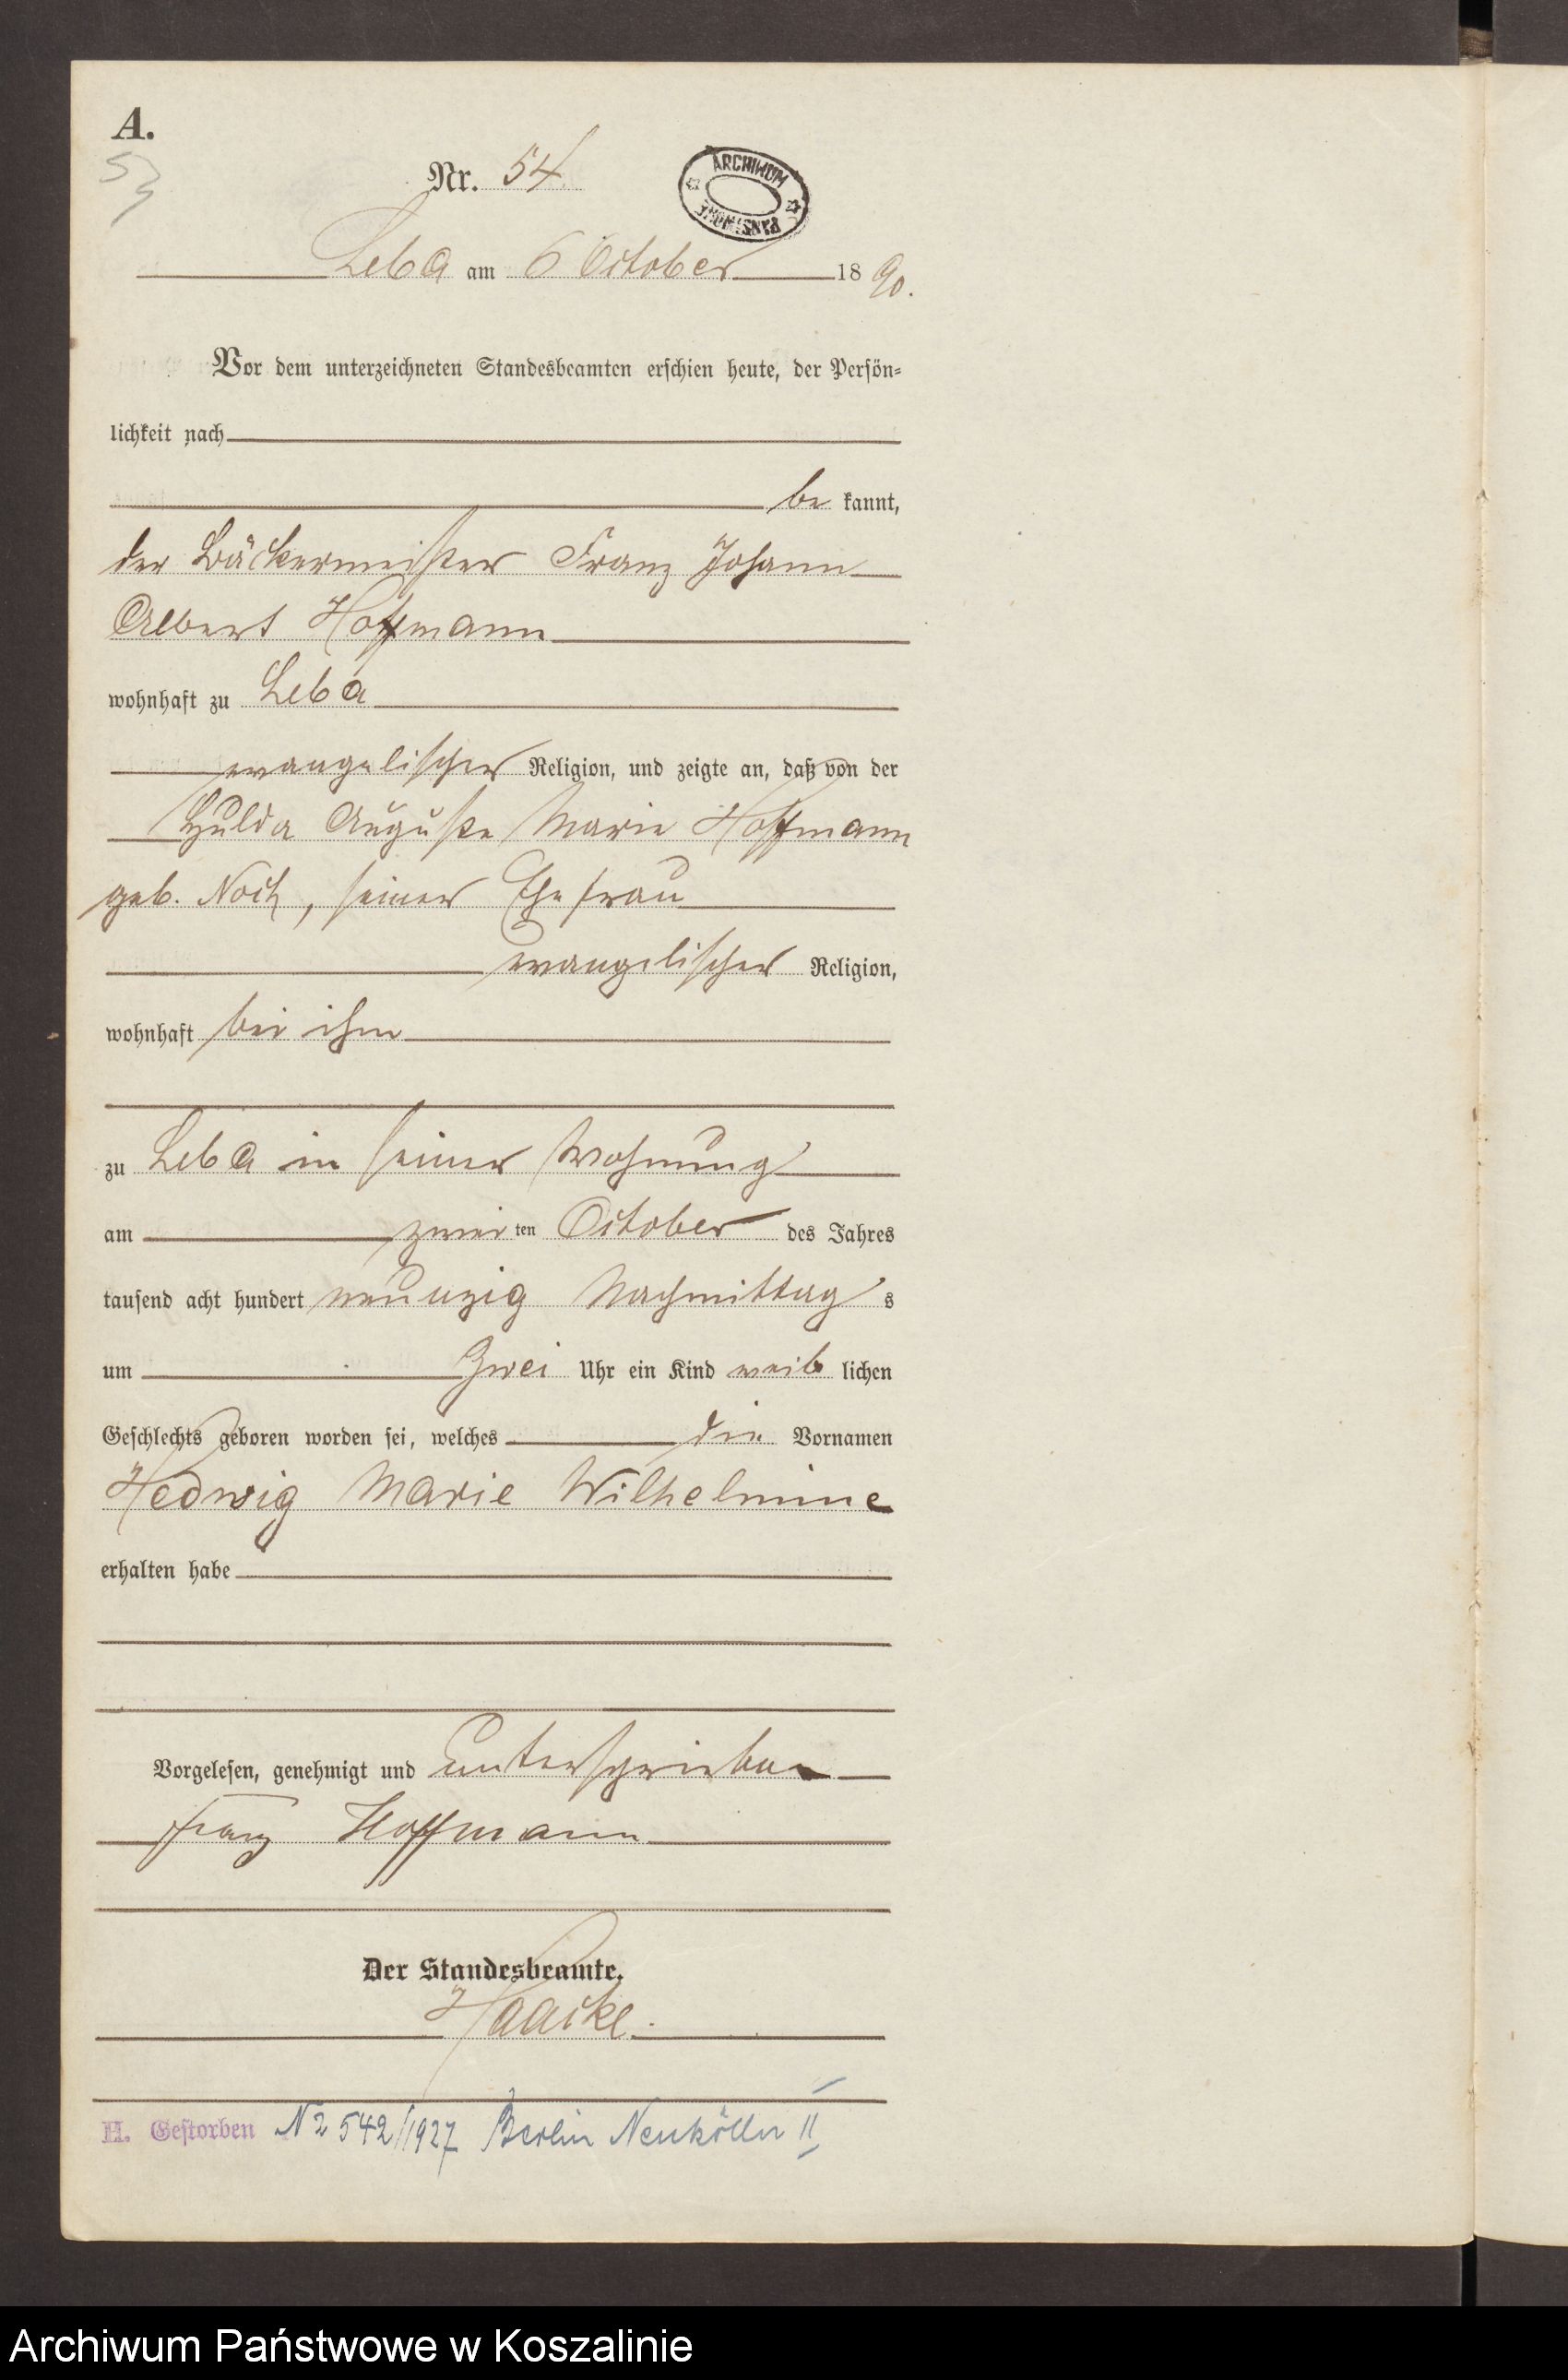 A.
53
Nr. 54
ARCHIWUM PAŃSTWOWE
Leba am 6 October 1890.
Vor dem unterzeichneten Standesbeamten erschien heute, der Persön=
lichkeit nach
be kannt,
der Bäckermeister Franz Johann
Albert Hoffmann
wohnhaft zu Leba
evangelischer Religion, und zeigte an, daß von der
Hulda Auguste Marie Hoffmann
geb. Noch, seiner Ehefrau
evangelischer Religion,
wohnhaft bei ihm
zu Leba in seiner Wohnung
am zweiten October des Jahres
tausend acht hundert neunzig Nachmittags
um zwei Uhr ein Kind weiblichen
Geschlechts geboren worden sei, welches die Vornamen
Hedwig Marie Wilhelmine
erhalten habe
Vorgelesen, genehmigt und unterschrieben
Franz Hoffmann
Der Standesbeamte.
Haacke.
H. Gestorben N2 542/1927 Berlin Neukölln II
Archiwum Państwowe w Koszalinie